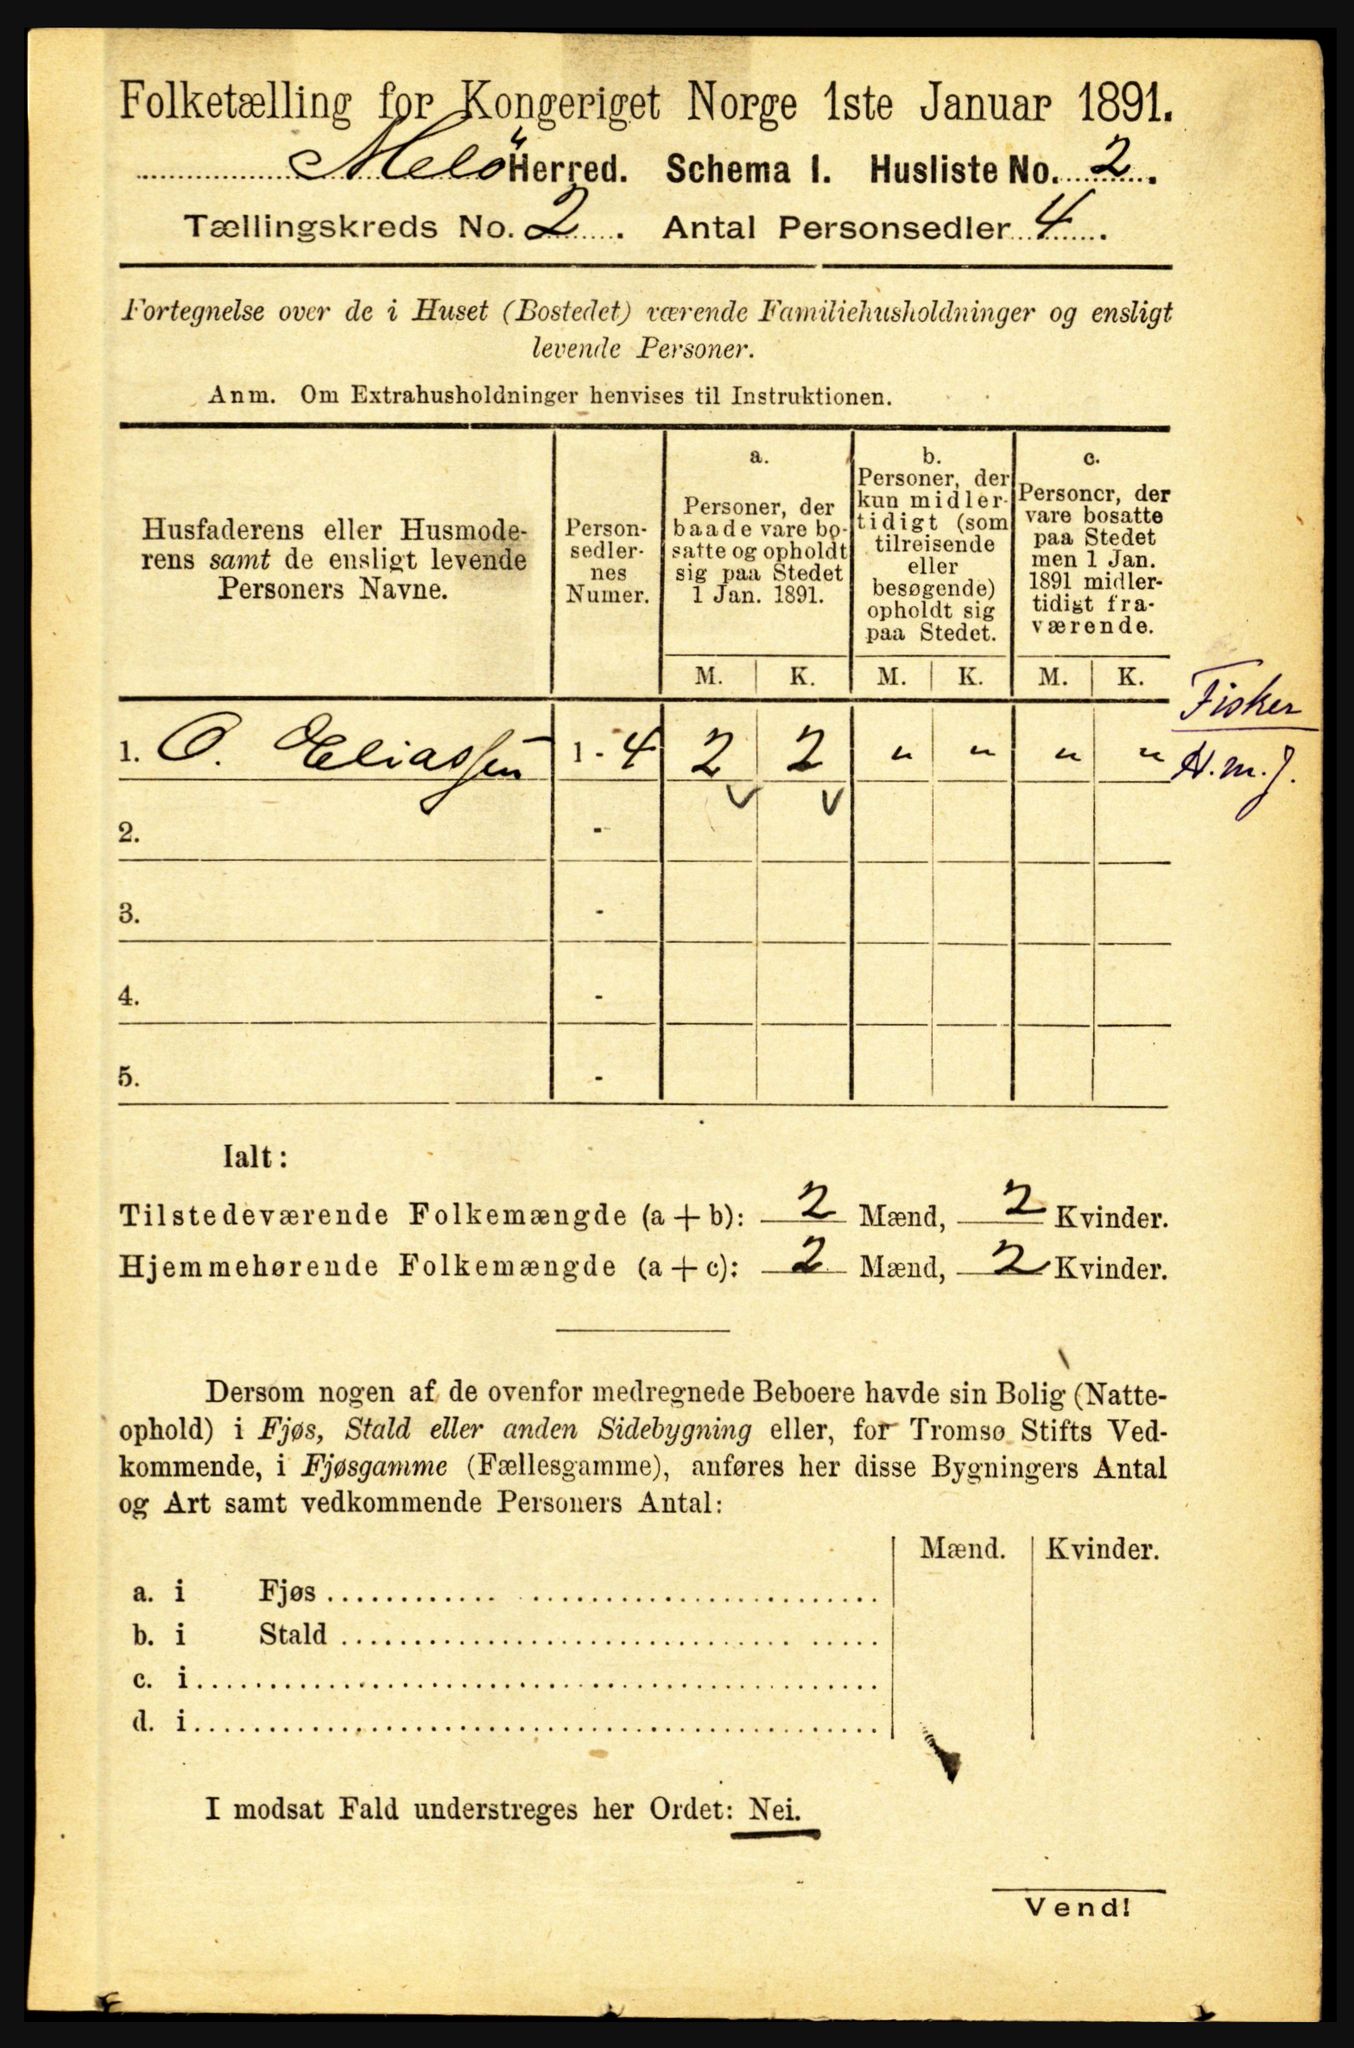 Folketælling for Kongeriget Norge 1ste Januar 1891.
Melö Herred. Schema I. Husliste No. 2.
Tællingskreds No. 2. Antal Personsedler 4.
Fortegnelse over de i Huset (Bostedet) værende Familiehusholdninger og ensligt
levende Personer.
Anm. Om Extrahusholdninger henvises til Instruktionen.
Husfaderens eller Husmode-
rens samt de ensligt levende
Personers Navne.
Person-
sedler-
nes
Numer.
a.
Personer, der
baade vare bo-
satte og opholdt
sig paa Stedet
1 Jan. 1891.
b.
Personer, der
kun midler-
tidigt (som
tilreisende
eller
besøgende)
opholdt sig
paa Stedet.
c.
Personer, der
vare bosatte
paa Stedet
men 1 Jan.
1891 midler-
tidigt fra-
værende.
M. K. M. K. M. K.
Fisker
1. O. Eliassen 1 - 4 2 2 " " " " H.m.J.
2. -
3. -
4. -
5. -
Ialt:
Tilstedeværende Folkemængde (a + b): 2 Mænd, 2 Kvinder.
Hjemmehørende Folkemængde (a + c): 2 Mænd, 2 Kvinder.
Dersom nogen af de ovenfor medregnede Beboere havde sin Bolig (Natte-
ophold) i Fjøs, Stald eller anden Sidebygning eller, for Tromsø Stifts Ved-
kommende, i Fjøsgamme (Fællesgamme), anføres her disse Bygningers Antal
og Art samt vedkommende Personers Antal:
Mænd. Kvinder.
a. i Fjøs
b. i Stald
c. i
d. i
I modsat Fald understreges her Ordet: Nei.
Vend!